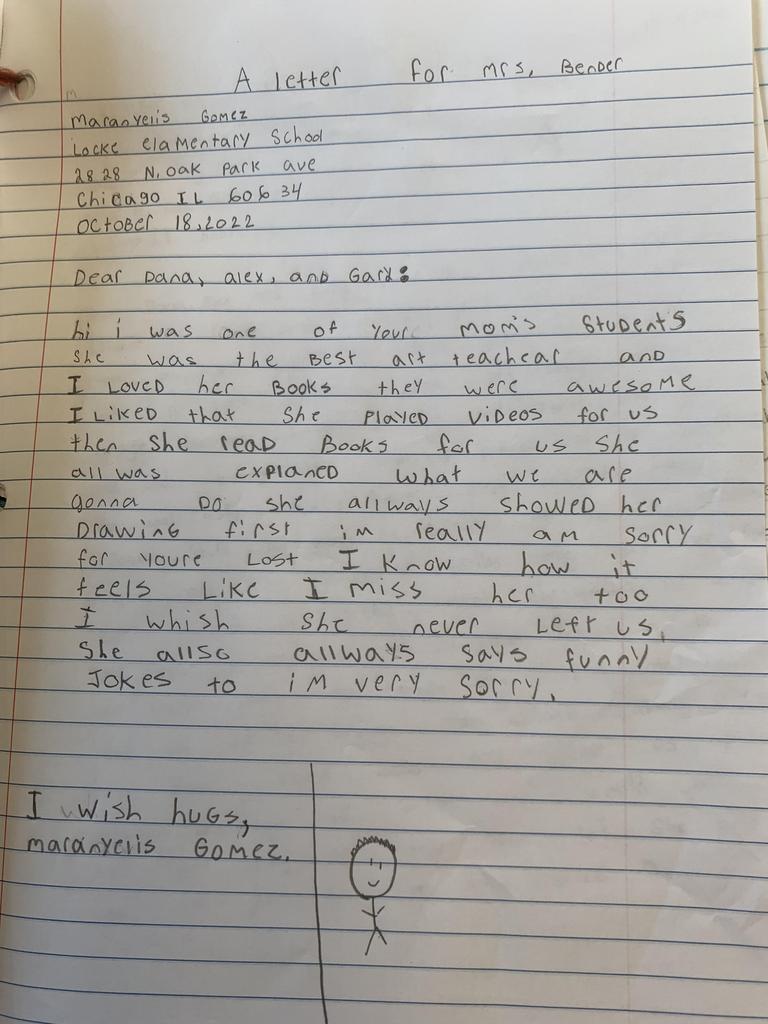 A letter for mrs, Bender
maranyelis Gomez
Locke elamentary School
2828 N, oak park ave
Chicago IL 60634
OCtOBer 18,2022
Dear Dana, alex, and Gary:
hi i was one of your mom's students
She was the Best art teachear and
I LOVeD her Books they were awesome
I LiKeD that She PlayeD ViDeos for us
then She reaD Books for us She
all was explaneD what we are
gonna Do she allways showeD her
Drawing first im really am sorry
for youre Lost I Know how it
feels LiKe I miss her too
I whish She never Left us,
She allso allways says funny
JoKes to im very sorry.
I wish huGs,
maranyelis Gomez.